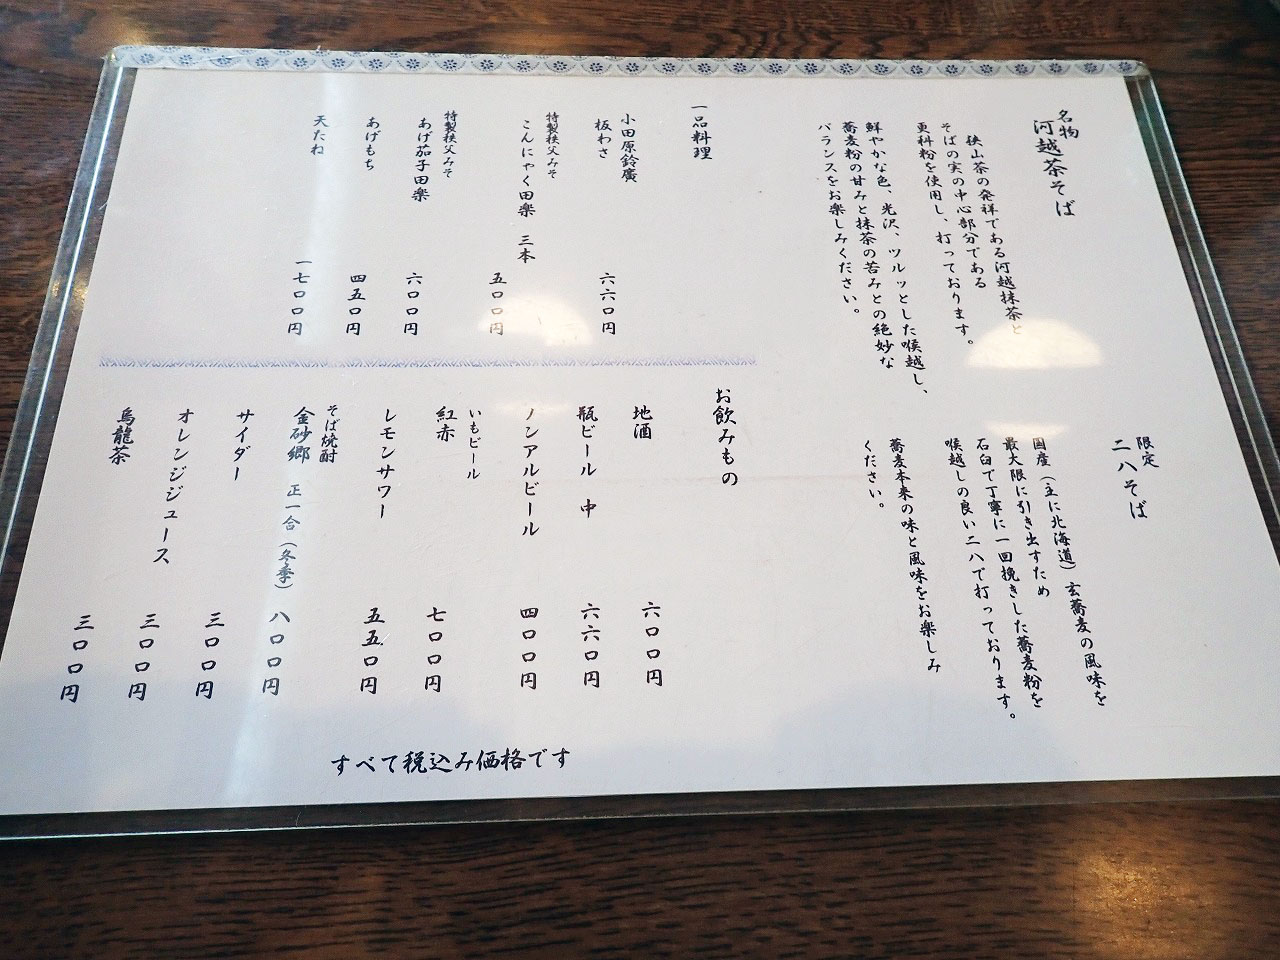 名物
河越茶そば
狭山茶の発祥である河越抹茶と
そばの実の中心部分である
更科粉を使用し、打っております。
鮮やかな色、光沢、ツルッとした喉越し、
蕎麦粉の甘みと抹茶の苦みとの絶妙な
バランスをお楽しみください。
限定
二八そば
国産（主に北海道）玄蕎麦の風味を
最大限に引き出すため
石臼で丁寧に一回挽きした蕎麦粉を
喉越しの良い二八で打っております。
蕎麦本来の味と風味をお楽しみ
ください。
一品料理
小田原鈴廣
板わさ 六六〇円
特製秩父みそ
こんにゃく田楽 三本 五〇〇円
特製秩父みそ
あげ茄子田楽 六〇〇円
あげもち 四五〇円
天たね 一七〇〇円
お飲みもの
地酒 六〇〇円
瓶ビール 中 六六〇円
ノンアルビール 四〇〇円
いもビール
紅赤 七〇〇円
レモンサワー 五五〇円
そば焼酎
金砂郷 正一合（冬季） 八〇〇円
サイダー 三〇〇円
オレンジジュース 三〇〇円
烏龍茶 三〇〇円
すべて税込み価格です